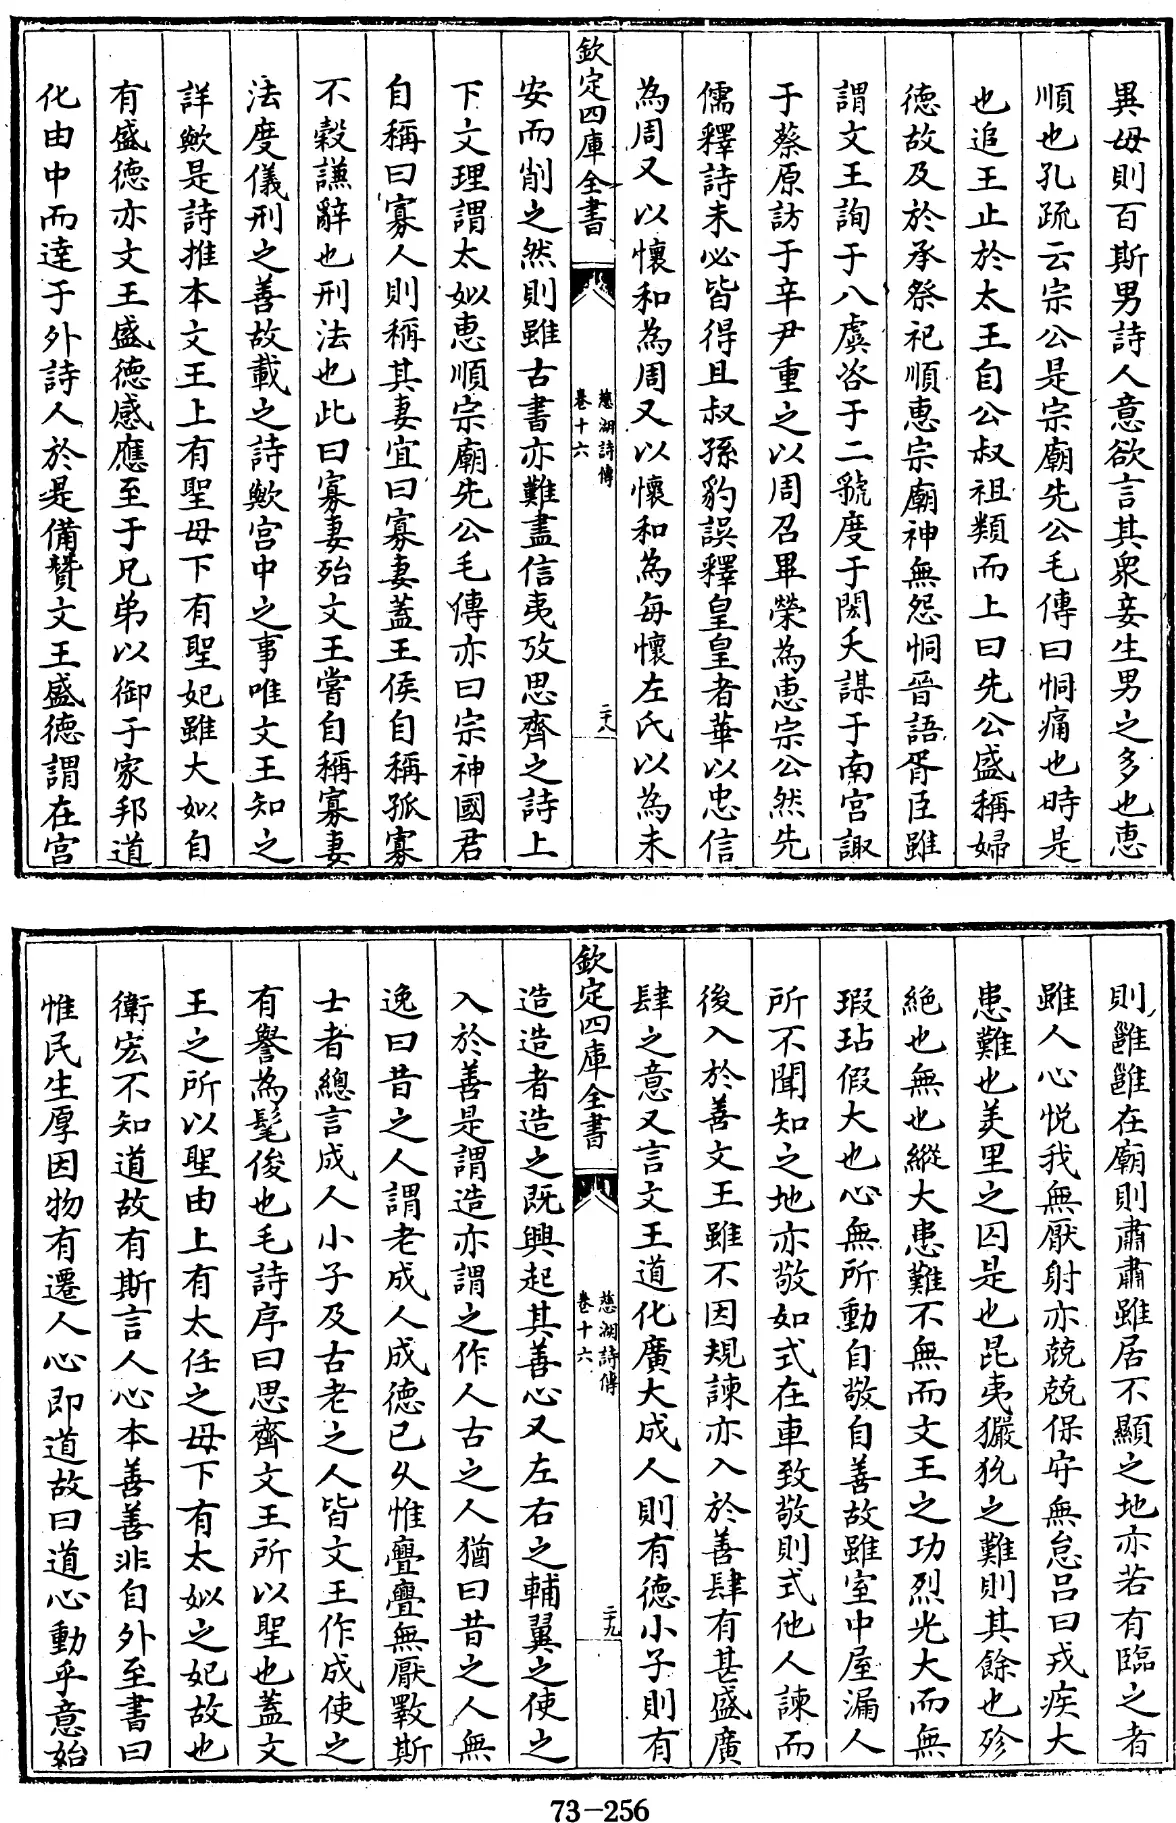 異毋則百斯男詩人意欲言其衆妾生男之多也恵
順也孔疏云宗公是宗廟先公毛傳曰恫痛也時是
也追王止於太王自公叔祖類而上曰先公盛稱婦
德故及於承祭祀順惠宗廟神無怨恫晉語胥臣雖
謂文王詢于八虞咨于二虢度于閎夭謀于南宫諏
于蔡原訪于辛尹重之以周召畢榮為恵宗公然先
儒釋詩未必皆得且叔孫豹誤釋皇皇者華以忠信
為周又以懷和為周又以懷和為每懷左氏以為未
欽定四庫全書
慈湖詩傳
卷十六
二十八
安而削之然則雖古書亦難盡信夷攷思齊之詩上
下文理謂太姒恵順宗廟先公毛傳亦曰宗神國君
自稱曰寡人則稱其妻宜曰寡妻蓋王侯自稱孤寡
不榖謙辭也刑法也此曰寡妻殆文王嘗自稱寡妻
法度儀刑之善故載之詩歟宫中之事唯文王知之
詳歟是詩推本文王上有聖母下有聖妃雖大姒自
有盛德亦文王盛德感應至于兄弟以御于家邦道
化由中而達于外詩人於是備贊文王盛德謂在宫
則雝雝在廟則肅肅雖居不顯之地亦若有臨之者
雖人心悦我無厭射亦兢兢保守無怠吕曰戎疾大
患難也羑里之囚是也昆夷玁狁之難則其餘也殄
絶也無也縱大患難不無而文王之功烈光大而無
瑕玷假大也心無所動自敬自善故雖室中屋漏人
所不聞知之地亦敬如式在車致敬則式他人諫而
後入於善文王雖不因規諫亦入於善肆有甚盛廣
肆之意又言文王道化廣大成人則有德小子則有
欽定四庫全書
慈湖詩傳
卷十六
二十九
造造者造之既興起其善心又左右之輔翼之使之
入於善是謂造亦謂之作人古之人猶曰昔之人無
逸曰昔之人謂老成人成德已久惟亹亹無厭斁斯
士者總言成人小子及古老之人皆文王作成使之
有譽為髦俊也毛詩序曰思齊文王所以聖也蓋文
王之所以聖由上有太任之母下有太姒之妃故也
衛宏不知道故有斯言人心本善善非自外至書曰
惟民生厚因物有遷人心即道故曰道心動乎意始
73-256